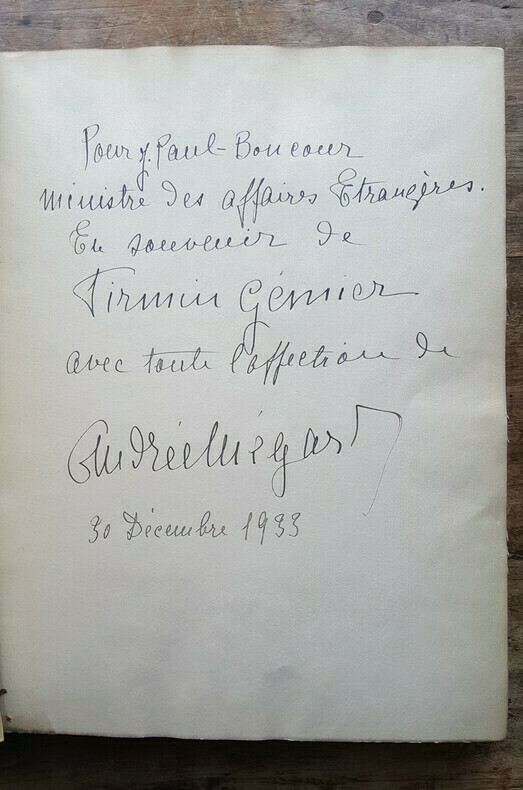 Pour J. Paul-Boncour
ministre des affaires Etrangères.
En souvenir de
Firmin Gémier
avec toute l'affection de
Andrée Mégard
30 Décembre 1933